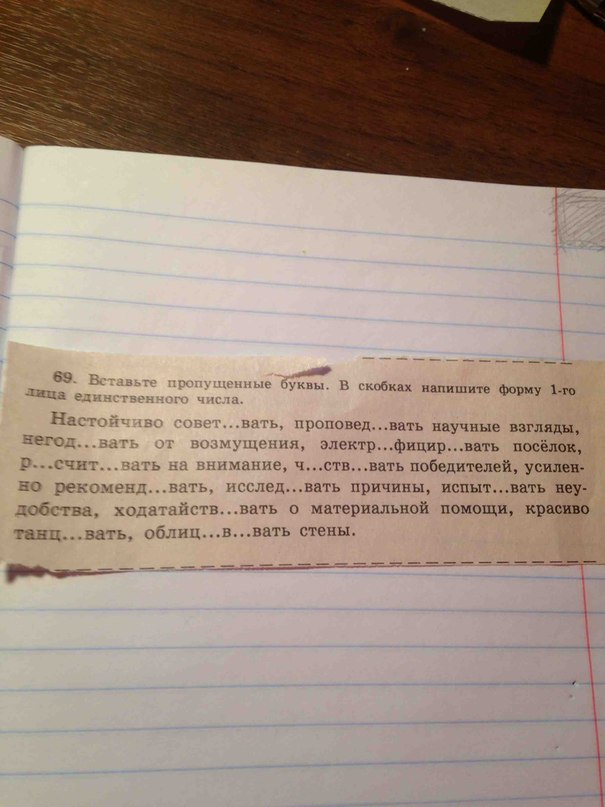 69. Вставьте пропущенные буквы. В скобках напишите форму 1-го
лица единственного числа.
Настойчиво совет...вать, проповед...вать научные взгляды,
негод...вать от возмущения, электр...фицир...вать посёлок,
р...счит...вать на внимание, ч...ств...вать победителей, усилен-
но рекоменд...вать, исслед...вать причины, испыт...вать неу-
добства, ходатайств...вать о материальной помощи, красиво
танц...вать, облиц...в...вать стены.